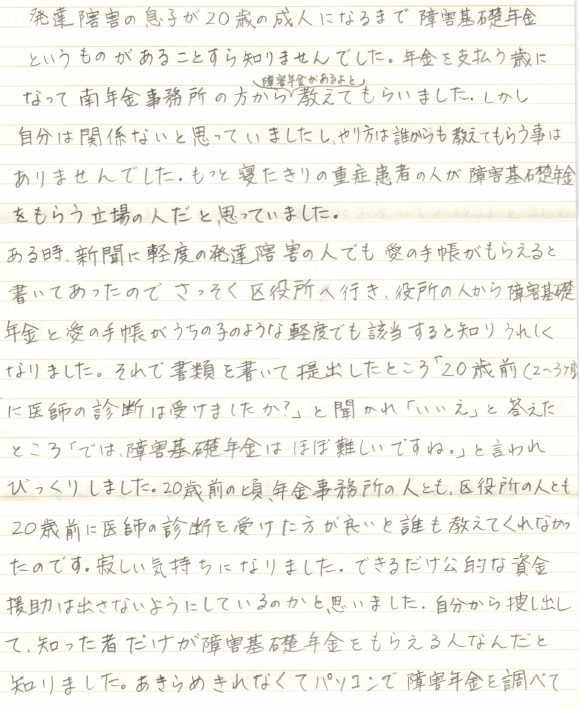 発達障害の息子が20歳の成人になるまで障害基礎年金
というものがあることすら知りませんでした。年金を支払う歳に
障害年金があるよと
なって南年金事務所の方から教えてもらいました。しかし
自分は関係ないと思っていましたし、やり方は誰からも教えてもらう事は
ありませんでした。もっと寝たきりの重症患者の人が障害基礎年金
をもらう立場の人だと思っていました。
ある時、新聞に軽度の発達障害の人でも愛の手帳がもらえると
書いてあったのでさっそく区役所へ行き、役所の人から障害基礎
年金と愛の手帳がうちの子のような軽度でも該当すると知りうれしく
なりました。それで書類を書いて提出したところ「20歳前(2〜3ヶ月)
に医師の診断は受けましたか?」と聞かれ「いいえ」と答えた
ところ「では、障害基礎年金はほぼ難しいですね。」と言われ
びっくりしました。20歳前の頃、年金事務所の人とも、区役所の人とも
20歳前に医師の診断を受けた方が良いと誰も教えてくれなかっ
たのです。寂しい気持ちになりました。できるだけ公的な資金
援助は出さないようにしているのかと、思いました。自分から捜し出し
て、知った者だけが障害基礎年金をもらえる人なんだと
知りました。あきらめきれなくてパソコンで障害年金を調べて